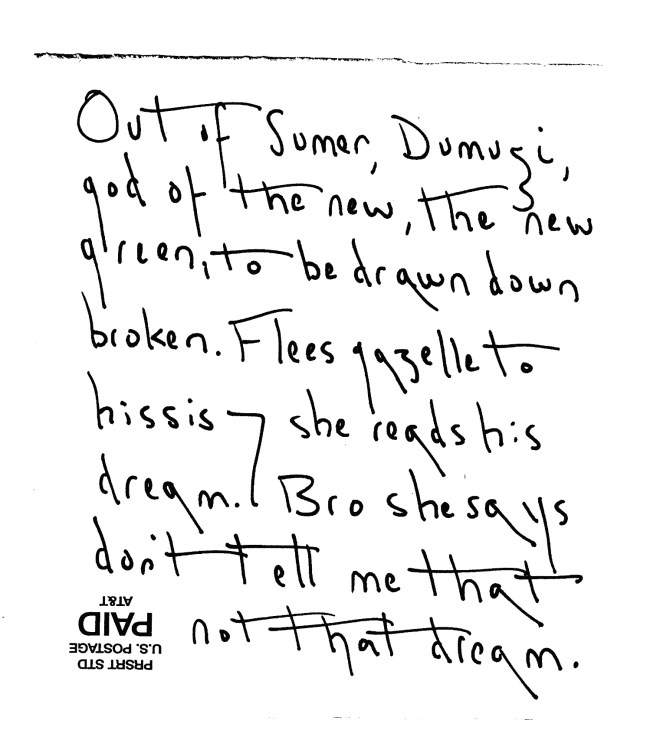 Out of Sumer, Dumuzi,
god of the new, the new
green, to be drawn down
broken. Flees gazelle to
his sis she reads his
dream. Bro she says
don't tell me that
not that dream.
PRSRT STD
U.S. POSTAGE
PAID
AT&T